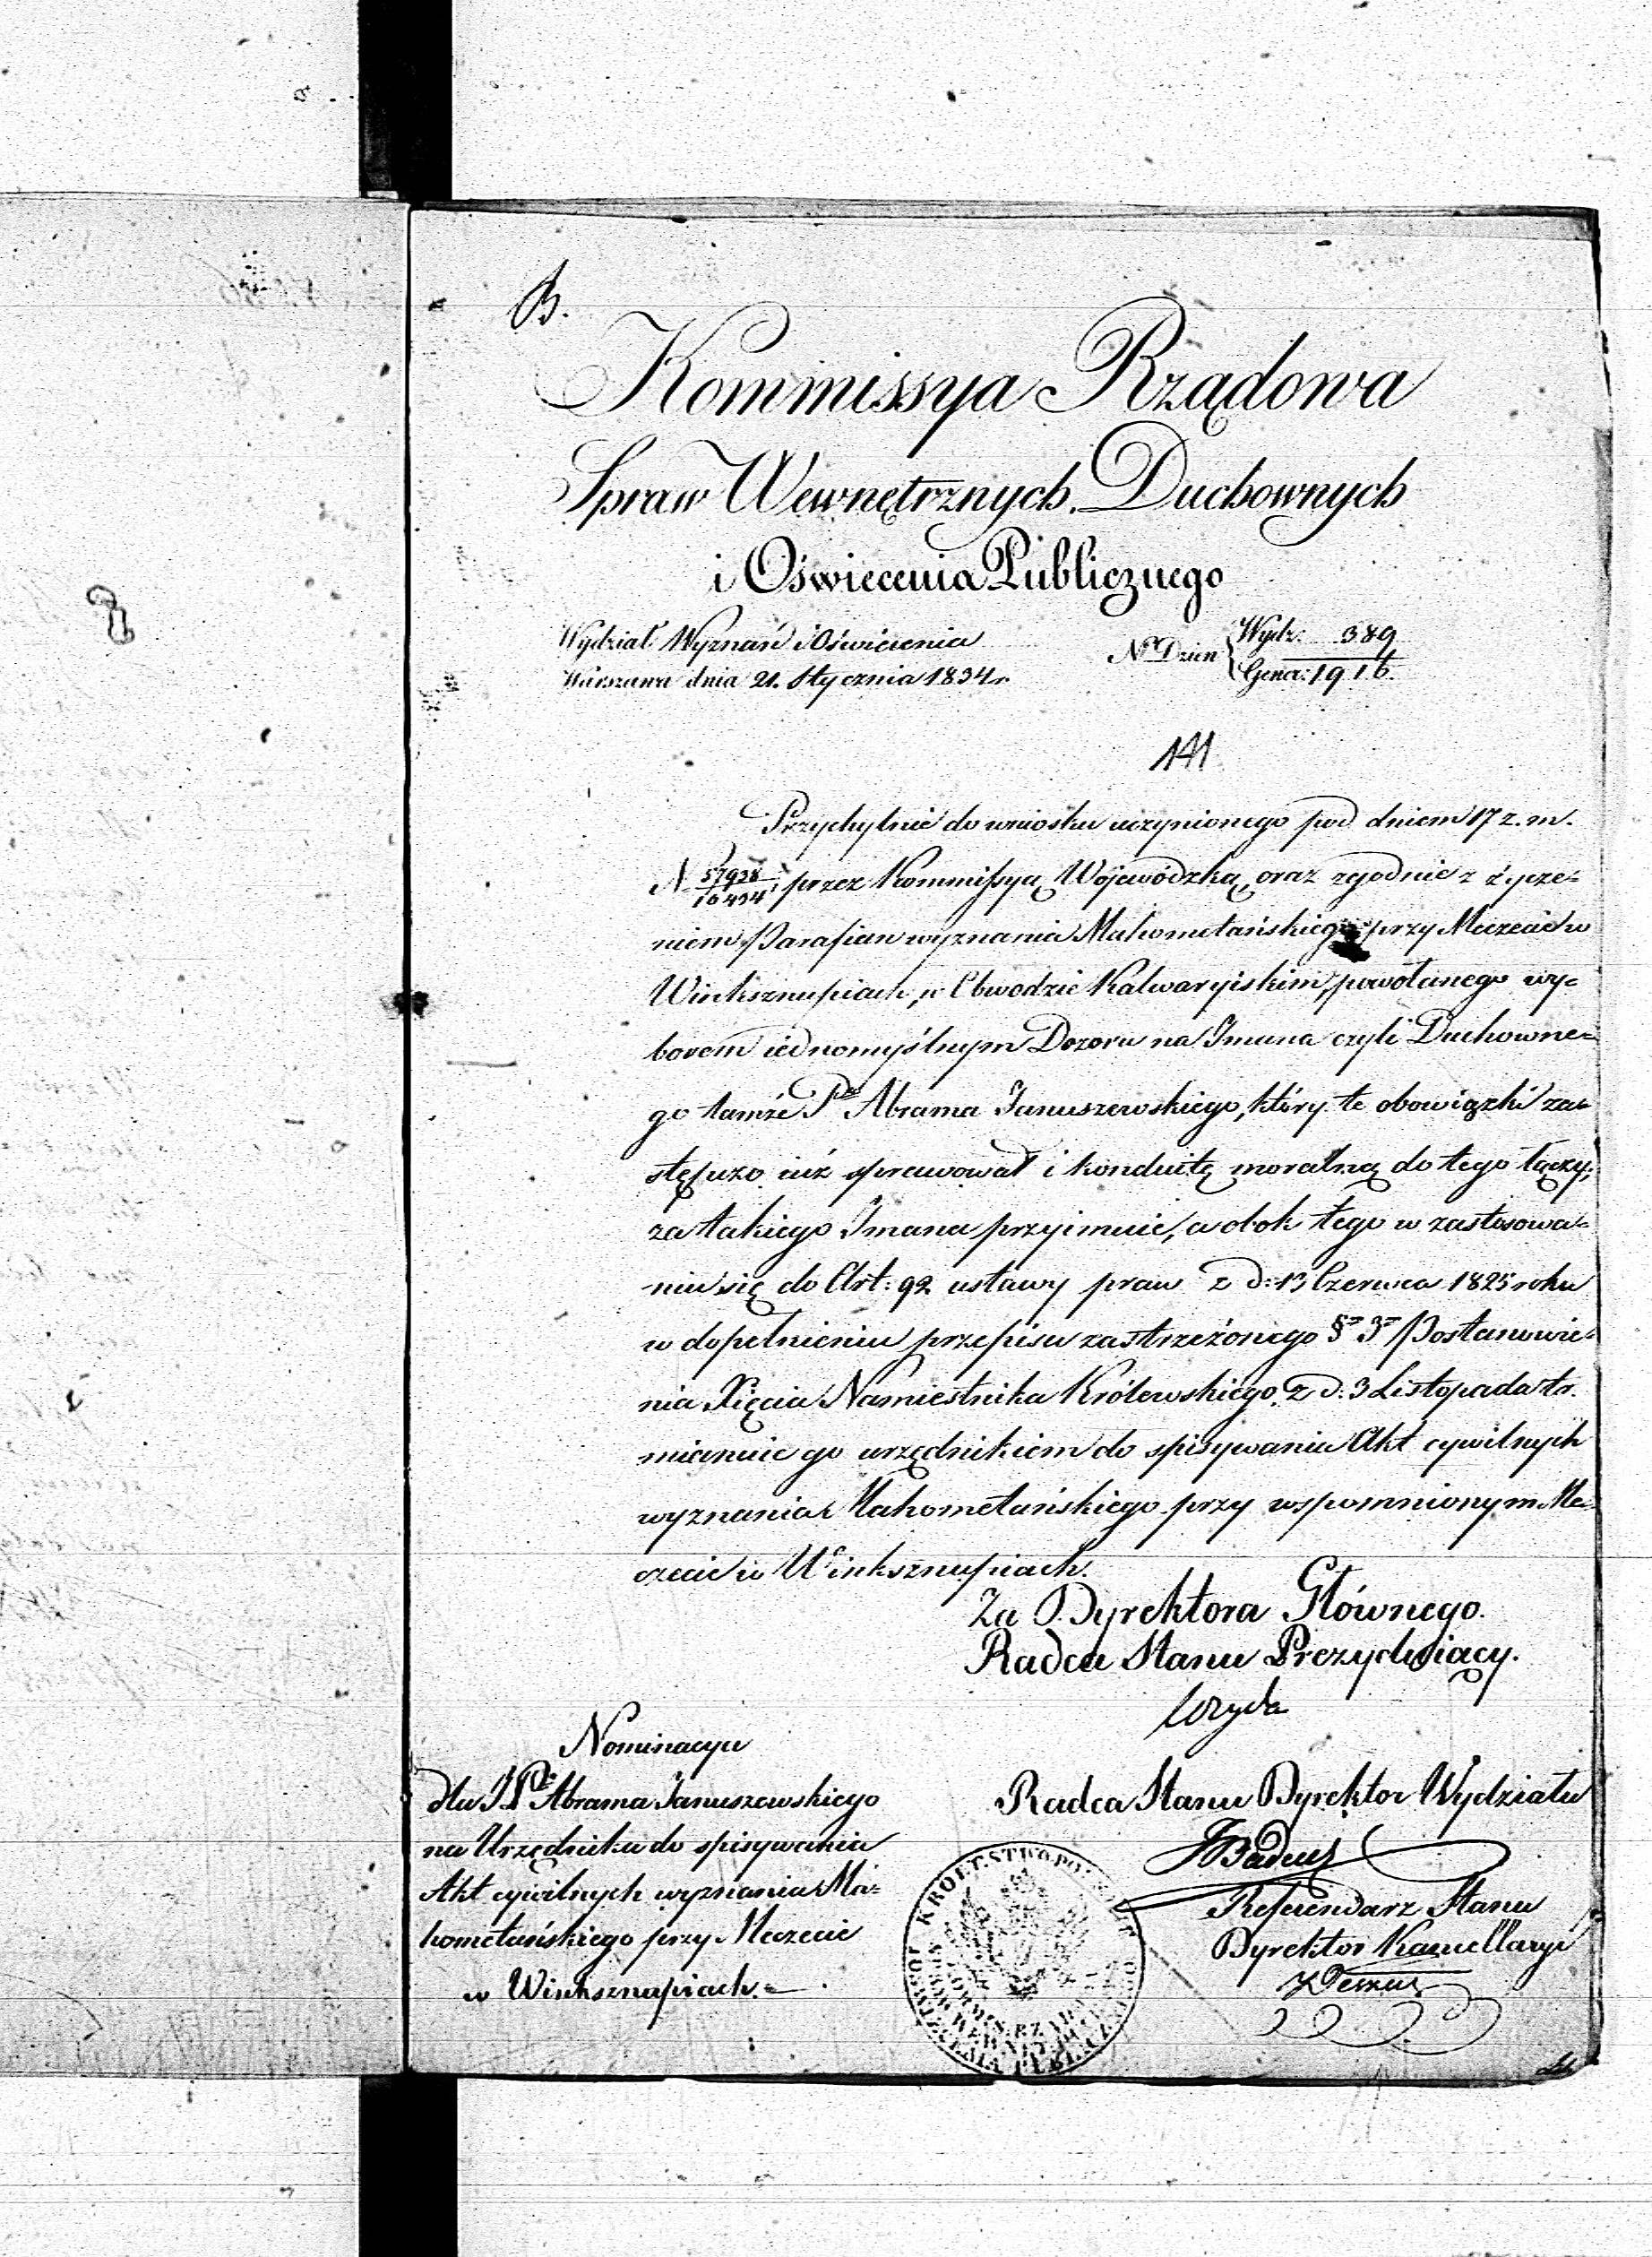 B.
Kommissya Rządowa
Spraw Wewnętrznych, Duchownych
i Oświecenia Publicznego
Wydział Wyznań i Oświecenia
Warszawa dnia 21. Stycznia 1834 r.
No Dzien { Wydz: 389
Gener: 1916.
141
Przychylnie do wniosku uczynionego pod dniem 17 z. m.
N 57938/16434, przez Kommissyą Wojewódzką, oraz zgodnie z życze=
niem Parafian wyznania Mahometańskiego przy Meczecie w
Winksznupiach, w Obwodzie Kalwaryiskim, powołanego wy=
borem iednomyślnym Dozoru na Imana czyli Duchowne=
go tamże Pa Abrama Januszewskiego, który te obowiązki za=
stępczo iuż sprawował i konduitę moralną do tego łączy,
za takiego Imana przyimuie, a obok tego w zastosowa=
niu się do Art: 92 ustawy praw z d: 13 Czerwca 1825 roku
w dopełnieniu przepisu zastrzeżonego § 3 Postanowie=
nia Xięcia Namiestnika Królewskiego z d: 3 Listopada tr.
mianuie go urzędnikiem do spisywania Akt cywilnych
wyznania Mahometańskiego przy wspomnionym Me=
czecie w Winksznupiach.
Za Dyrektora Głównego.
Radca Stanu Prezyduiący.
Nominacya
dla JPa Abrama Januszewskiego
na Urzędnika do spisywania
Akt cywilnych wyznania Ma=
hometańskiego przy Meczecie
w Winksznupiach.
Radca Stanu Dyrektor Wydziału
Referendarz Stanu
Dyrektor Kancellaryi
KROLESTWO POLSKIE
KOMMIS. RZĄD.
SPRAW WEWN. DUCH.
I OSWIECENIA PUBLICZNEGO